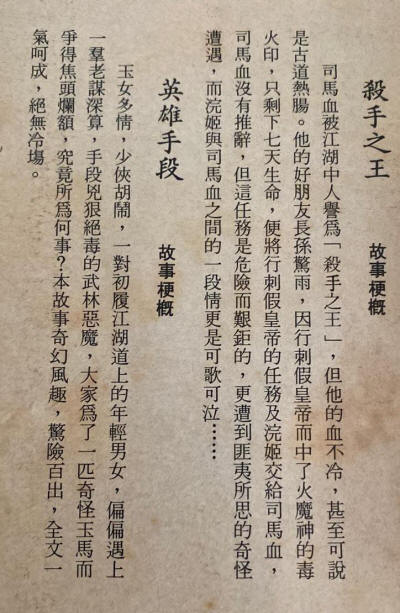 殺手之王　故事梗概
司馬血被江湖中人譽爲「殺手之王」，但他的血不冷，甚至可說
是古道熱腸。他的好朋友長孫驚雨，因行刺假皇帝而中了火魔神的毒
火印，只剩下七天生命，便將行刺假皇帝的任務及浣姬交給司馬血，
司馬血沒有推辭，但這任務是危險而艱鉅的，更遭到匪夷所思的奇怪
遭遇，而浣姬與司馬血之間的一段情更是可歌可泣……
英雄手段　故事梗概
玉女多情，少俠胡鬧，一對初履江湖道上的年輕男女，偏偏遇上
一羣老謀深算，手段兇狠絕毒的武林惡魔，大家爲了一匹奇怪玉馬而
爭得焦頭爛額，究竟所爲何事？本故事奇幻風趣，驚險百出，全文一
氣呵成，絕無冷場。